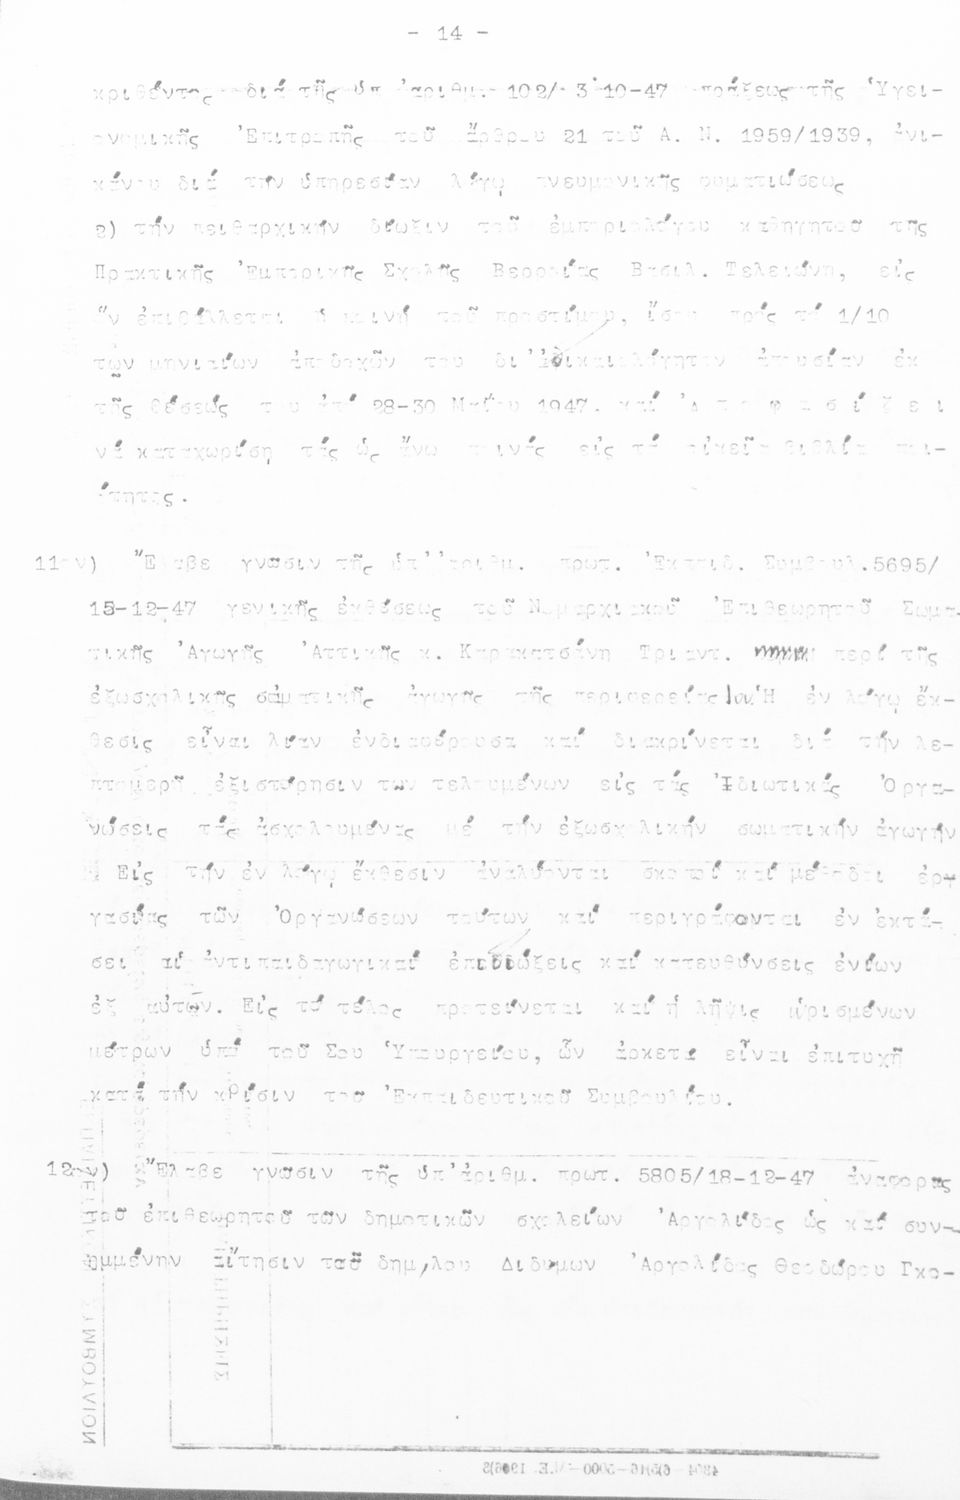 - 14 -
κριθέντος διά τῆς ὑπ' ἀριθμ. 102/ 3-10-47 πράξεως τῆς Ὑγει-
ονομικῆς Ἐπιτροπῆς τοῦ ἄρθρου 21 τοῦ Α. Ν. 1959/1939, ἀνι-
κάνου διά τήν ὑπηρεσίαν λόγῳ πνευμονικῆς φυματιώσεως
ε) τήν πειθαρχικήν δίωξιν τοῦ ἐμποριολόγου καθηγητοῦ τῆς
Πρακτικῆς Ἐμπορικῆς Σχολῆς Βερροίας Βασιλ. Τελειώνη, εἰς
ὅν ἐπιβάλλεται ἡ ποινή τοῦ προστίμου, ἴσου πρός τό 1/10
τῶν μηνιαίων ἀποδοχῶν του δι' ἀδικαιολόγητον ἀπουσίαν ἐκ
τῆς θέσεώς του ἀπό 28-30 Μαΐου 1947. καί Ἀ π ο φ α σ ί ζ ε ι
νά καταχωρίσῃ τάς ὡς ἄνω ποινάς εἰς τά οἰκεῖα βιβλία ποι-
ότητος.
11ον) Ἔλαβε γνῶσιν τῆς ὑπ' ἀριθμ. πρωτ. Ἐκπαιδ. Συμβουλ.5695/
15-12-47 γενικῆς ἐκθέσεως τοῦ Νομαρχιακοῦ Ἐπιθεωρητοῦ Σωμα-
τικῆς Ἀγωγῆς Ἀττικῆς κ. Καρακατσάνη Τριαντ. περί τῆς
ἐξωσχολικῆς σωματικῆς ἀγωγῆς τῆς περιφερείας του Ἡ ἐν λόγῳ ἔκ-
θεσις εἶναι λίαν ἐνδιαφέρουσα καί διακρίνεται διά τήν λε-
πτομερῆ ἐξιστόρησιν των τελουμένων εἰς τάς Ἰδιωτικάς Ὀργα-
νώσεις τάς ἀσχολουμένας μέ τήν ἐξωσχολικήν σωματικήν ἀγωγήν
Εἰς τήν ἐν λόγῳ ἔκθεσιν ἀναλύονται σκοποί καί μέθοδοι ἐρ-
γασίας τῶν Ὀργανώσεων τούτων καί περιγράφονται ἐν ἐκτά-
σει αἱ ἀντιπαιδαγωγικαί ἐπιδιώξεις καί κατευθύνσεις ἐνίων
ἐξ αὐτῶν. Εἰς τό τέλος προτείνεται καί ἡ λῆψις ὡρισμένων
μέτρων ὑπό τοῦ Σου Ὑπουργείου, ὧν ἀρκετά εἶναι ἐπιτυχῆ
κατά τήν κρίσιν τοῦ Ἐκπαιδευτικοῦ Συμβουλίου.
12ον) Ἔλαβε γνῶσιν τῆς ὑπ' ἀριθμ. πρωτ. 5805/18-12-47 ἀναφορᾶς
τοῦ ἐπιθεωρητοῦ τῶν δημοτικῶν σχολείων Ἀργολίδος ὡς καί συν-
ημμένην αἴτησιν τοῦ δημ/λου Διδύμων Ἀργολίδος Θεοδώρου Γκο-
ΣΥΜΒΟΥΛΙΟΝ